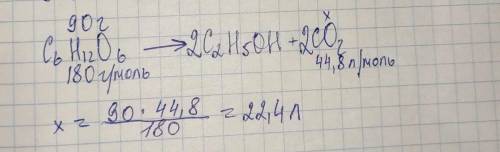 90г x
C₆H₁₂O₆ → 2C₂H₅OH + 2CO₂
180г/моль 44,8л/моль
x = 90 · 44,8 / 180 = 22,4л